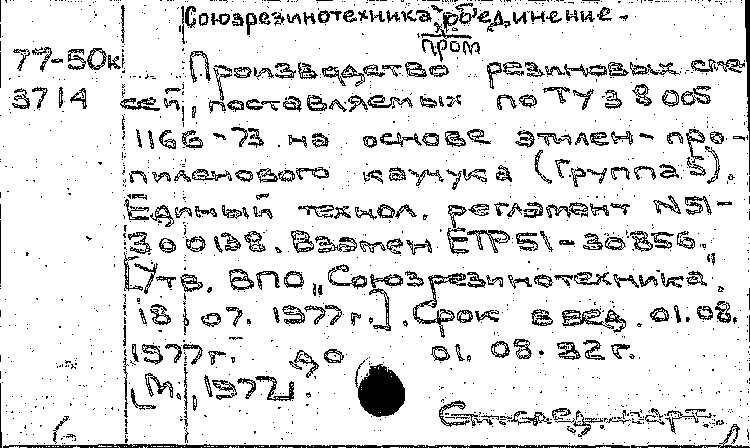 Союзрезинотехника объединение.
пром
77-50к Производство резиновых сме
3714 сей, поставляемых по ТУ 38 005
1166-73 на основе этилен-про-
пиленового каучука (Группа 5).
Единый технол. регламент №51-
300138. Взамен ЕТР51-30856.
[Утв. ВПО „Союзрезинотехника"
18. 07. 1977г.]. Срок введ. 01.08.
1977г. до 01. 08. 82г.
[М., 1977].
См. след. карт.